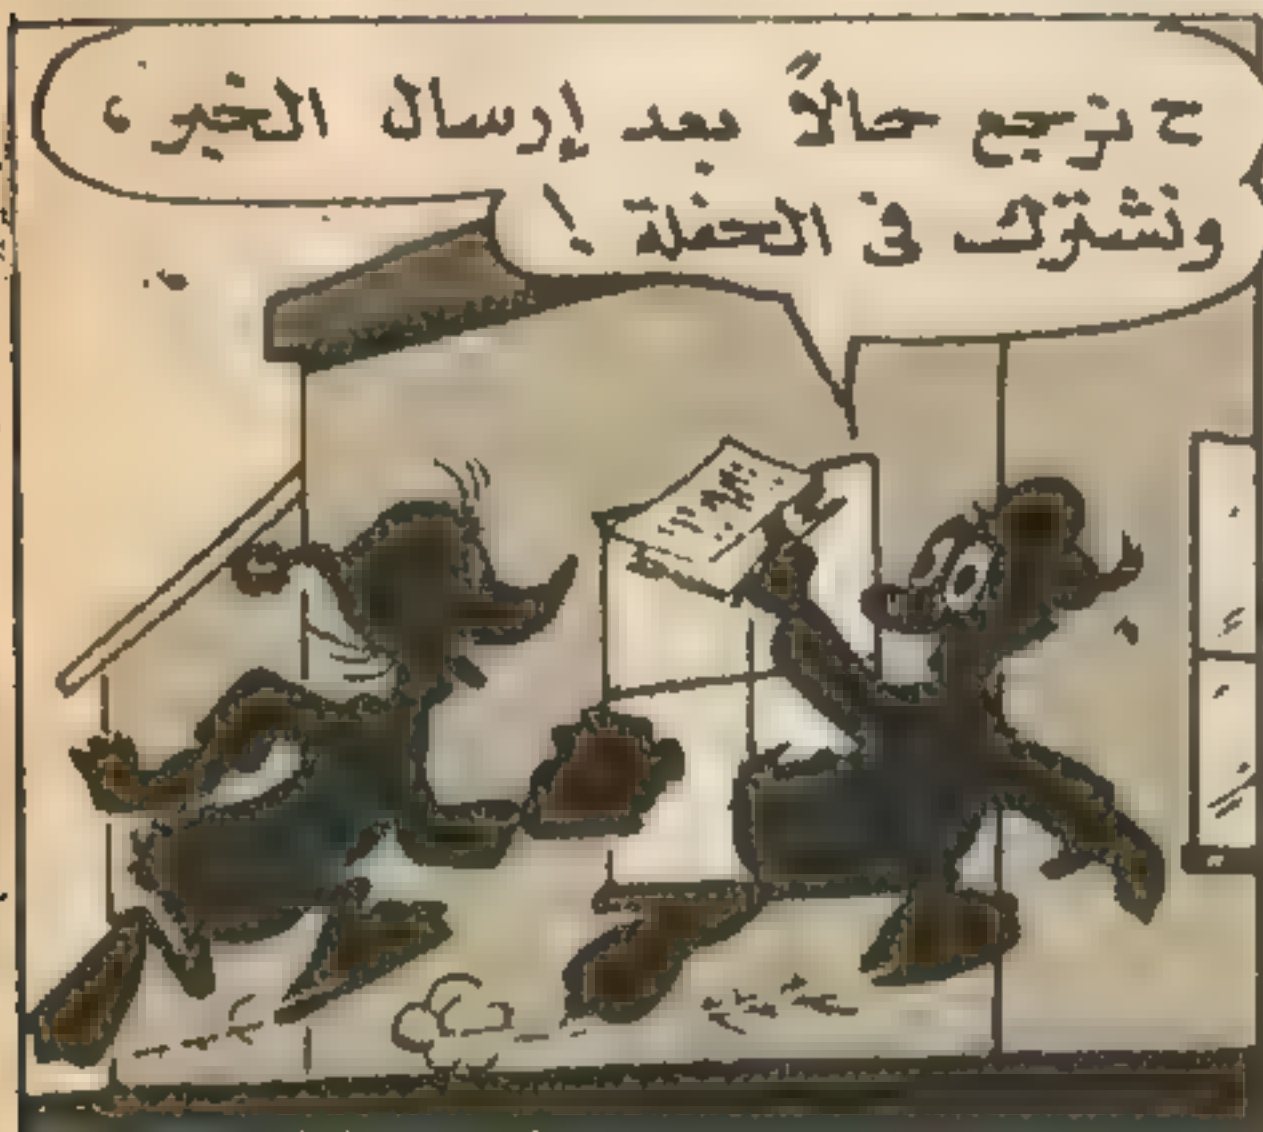 ح نرجع حالاً بعد إرسال الخبر،
ونشترك فى الحفلة !